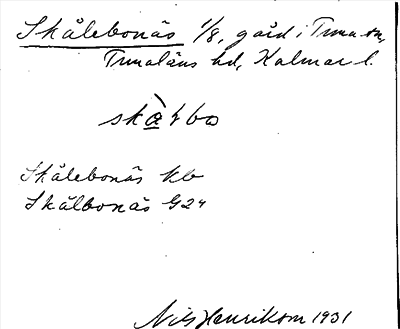 Skälebonäs 1/8, gård i Tuna sn,
Tunaläns hd, Kalmar l.
Skälebonäs kb
Skälbonäs G24
Nils Henrikson 1931